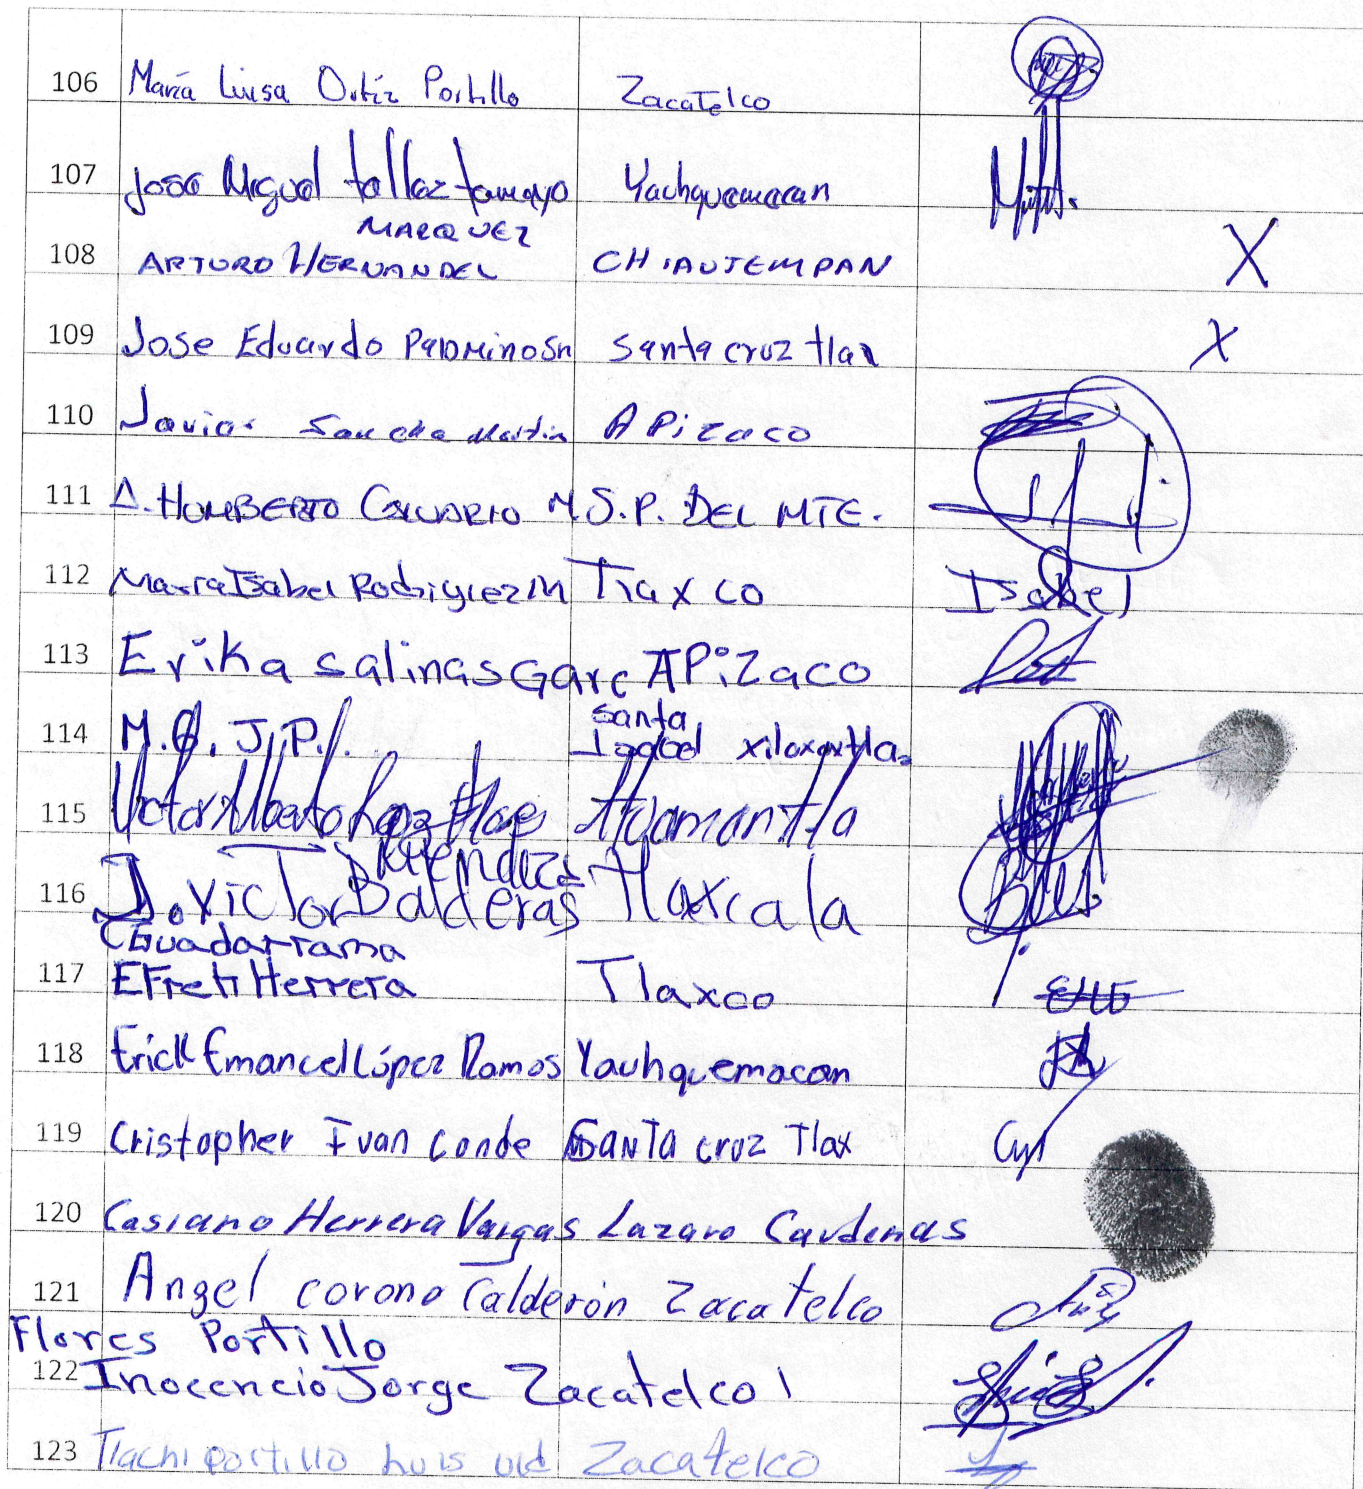 106 María Luisa Ortíz Portillo Zacatelco
107 José Miguel tamayo Yauhquemecan
MARQUEZ
108 ARTURO HERNANDEZ CHIAUTEMPAN X
109 Jose Eduardo Palomino Sn Santa cruz tlax X
110 Javier Sanchez Martin APizaco
111 A. HUMBERTO M S.P. DEL MTE.
112 Maria Isabel Rodriguez M Tlaxco Isabel
113 Erika Salinas Garc APiZaco
Santa
114 M. J.P. Isabel xiloxoxtla
115 Victor Alberto Lopez Huamantla
Mendieta
116 J. Victor Balderas Tlaxcala
Guadarrama
117 EFren Herrera Tlaxco EHG
118 Erick Emanuel López Ramos Yauhquemacan
119 Cristopher Ivan Conde Santa cruz Tlax
120 Casiano Herrera Vargas Lazaro Cardenas
121 Angel corona Calderón Zacatelco
Flores Portillo
122 Inocencio Jorge Zacatelco
123 Tlachi portillo luis Zacatelco